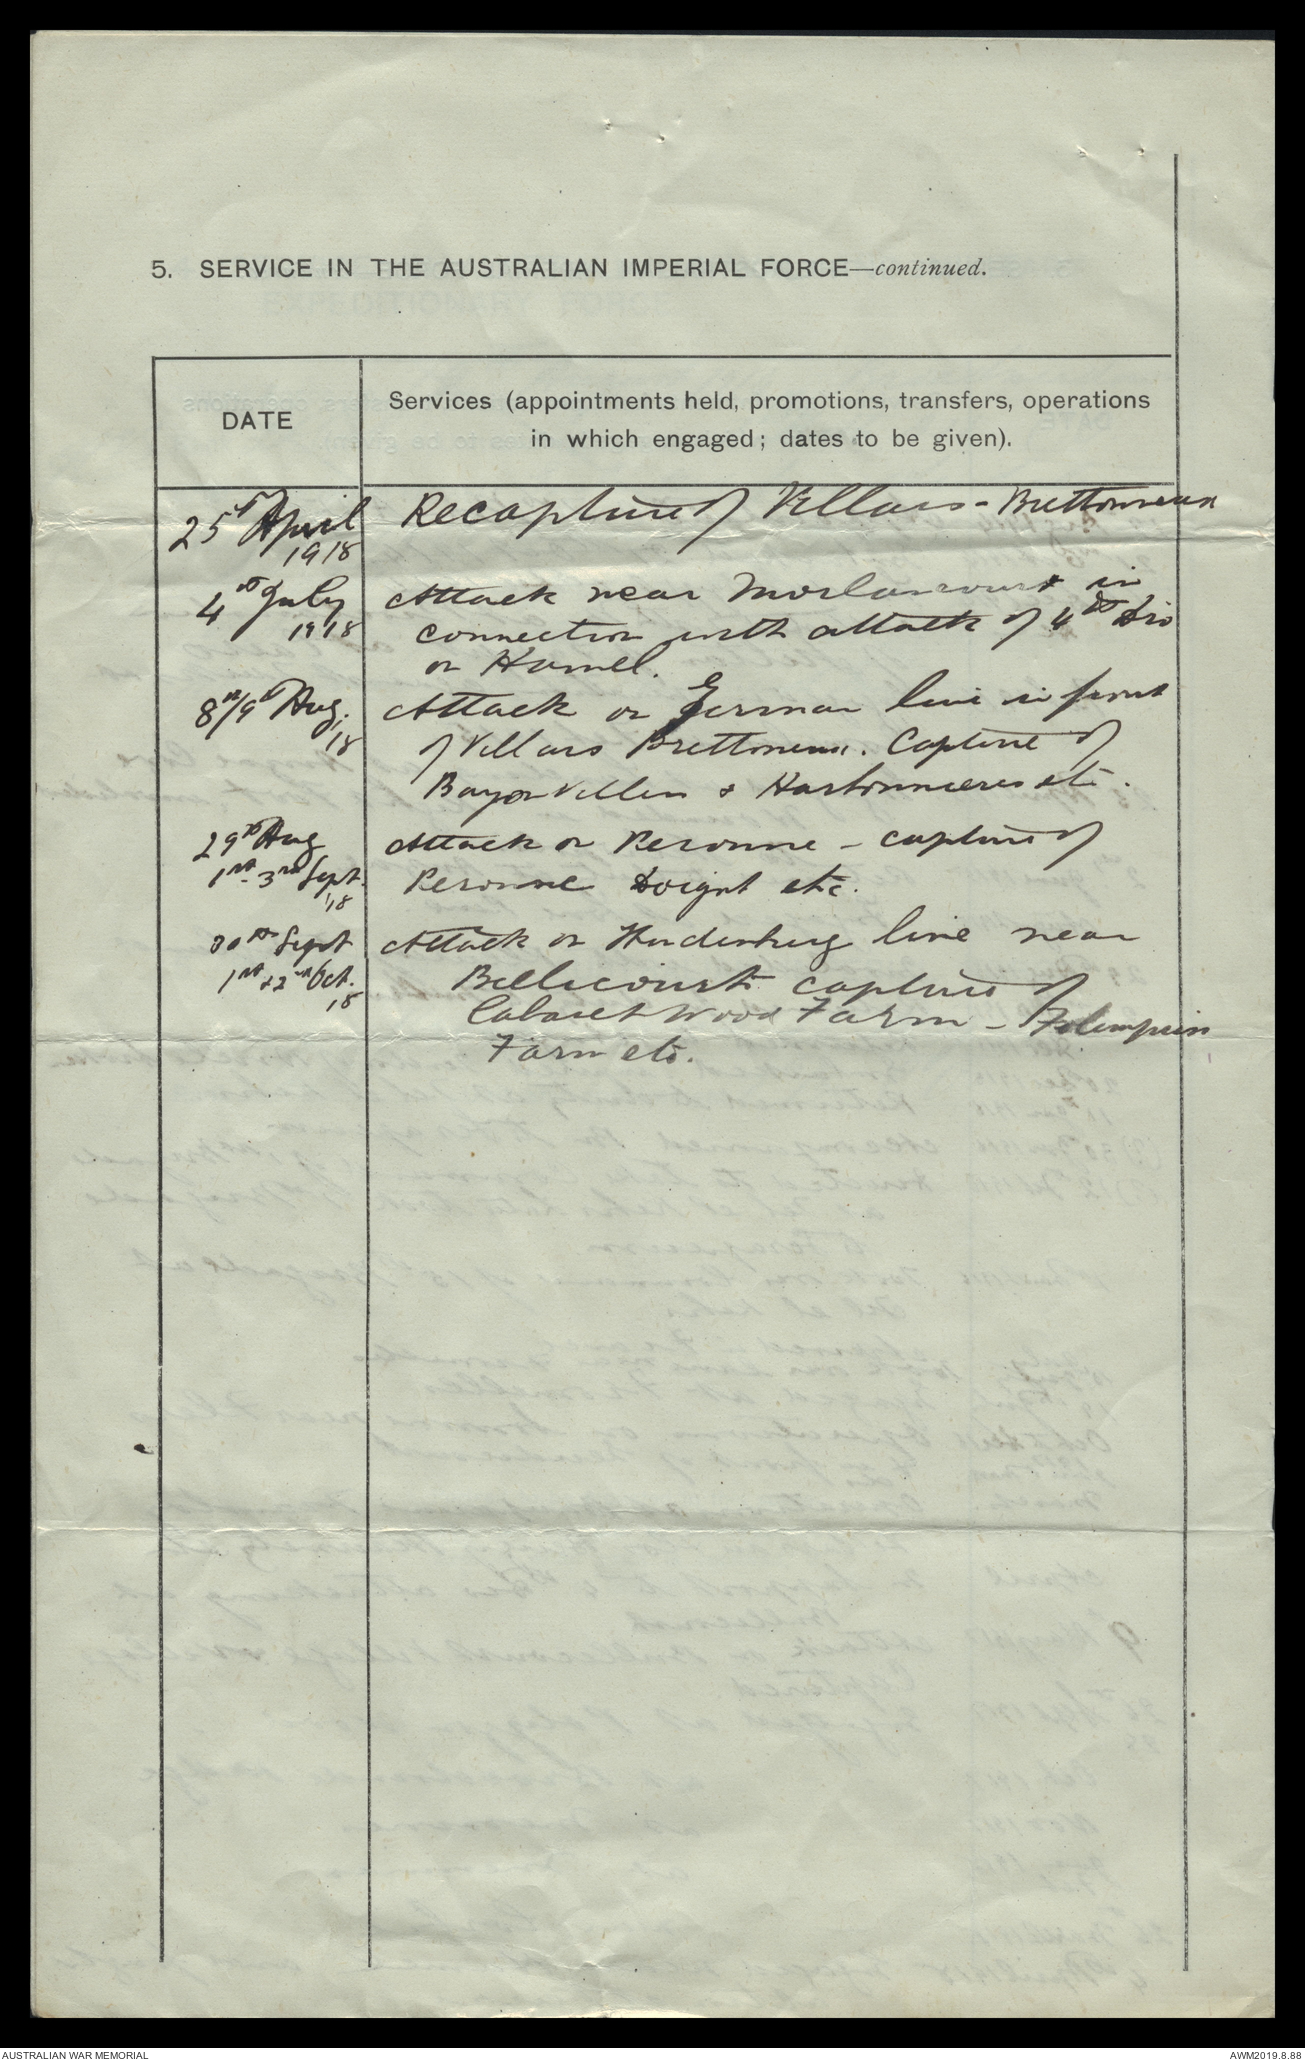 5. SERVICE IN THE AUSTRALIAN IMPERIAL FORCE—continued.
DATE
Services (appointments held, promotions, transfers, operations
in which engaged; dates to be given).
25th April
1918
Recapture of Villers-Bretonneux
4th July
1918
Attack near Morlancourt in
connection with attack of 4th Div
on Hamel.
8th/9th Aug.
'18
Attack on German line in front
of Villers Brettoneux. Capture of
Bayonvillers & Harbonnieres etc.
29th Aug
1st-3rd Sept.
'18
Attack on Peronne - capture of
Peronne Doignt etc.
30th Sept
1st & 2nd Oct.
'18
Attack on Hindenburg line near
Bellicourt capture of
Cabaret Wood Farm -
Farm etc.
AUSTRALIAN WAR MEMORIAL
AWM2019.8.88